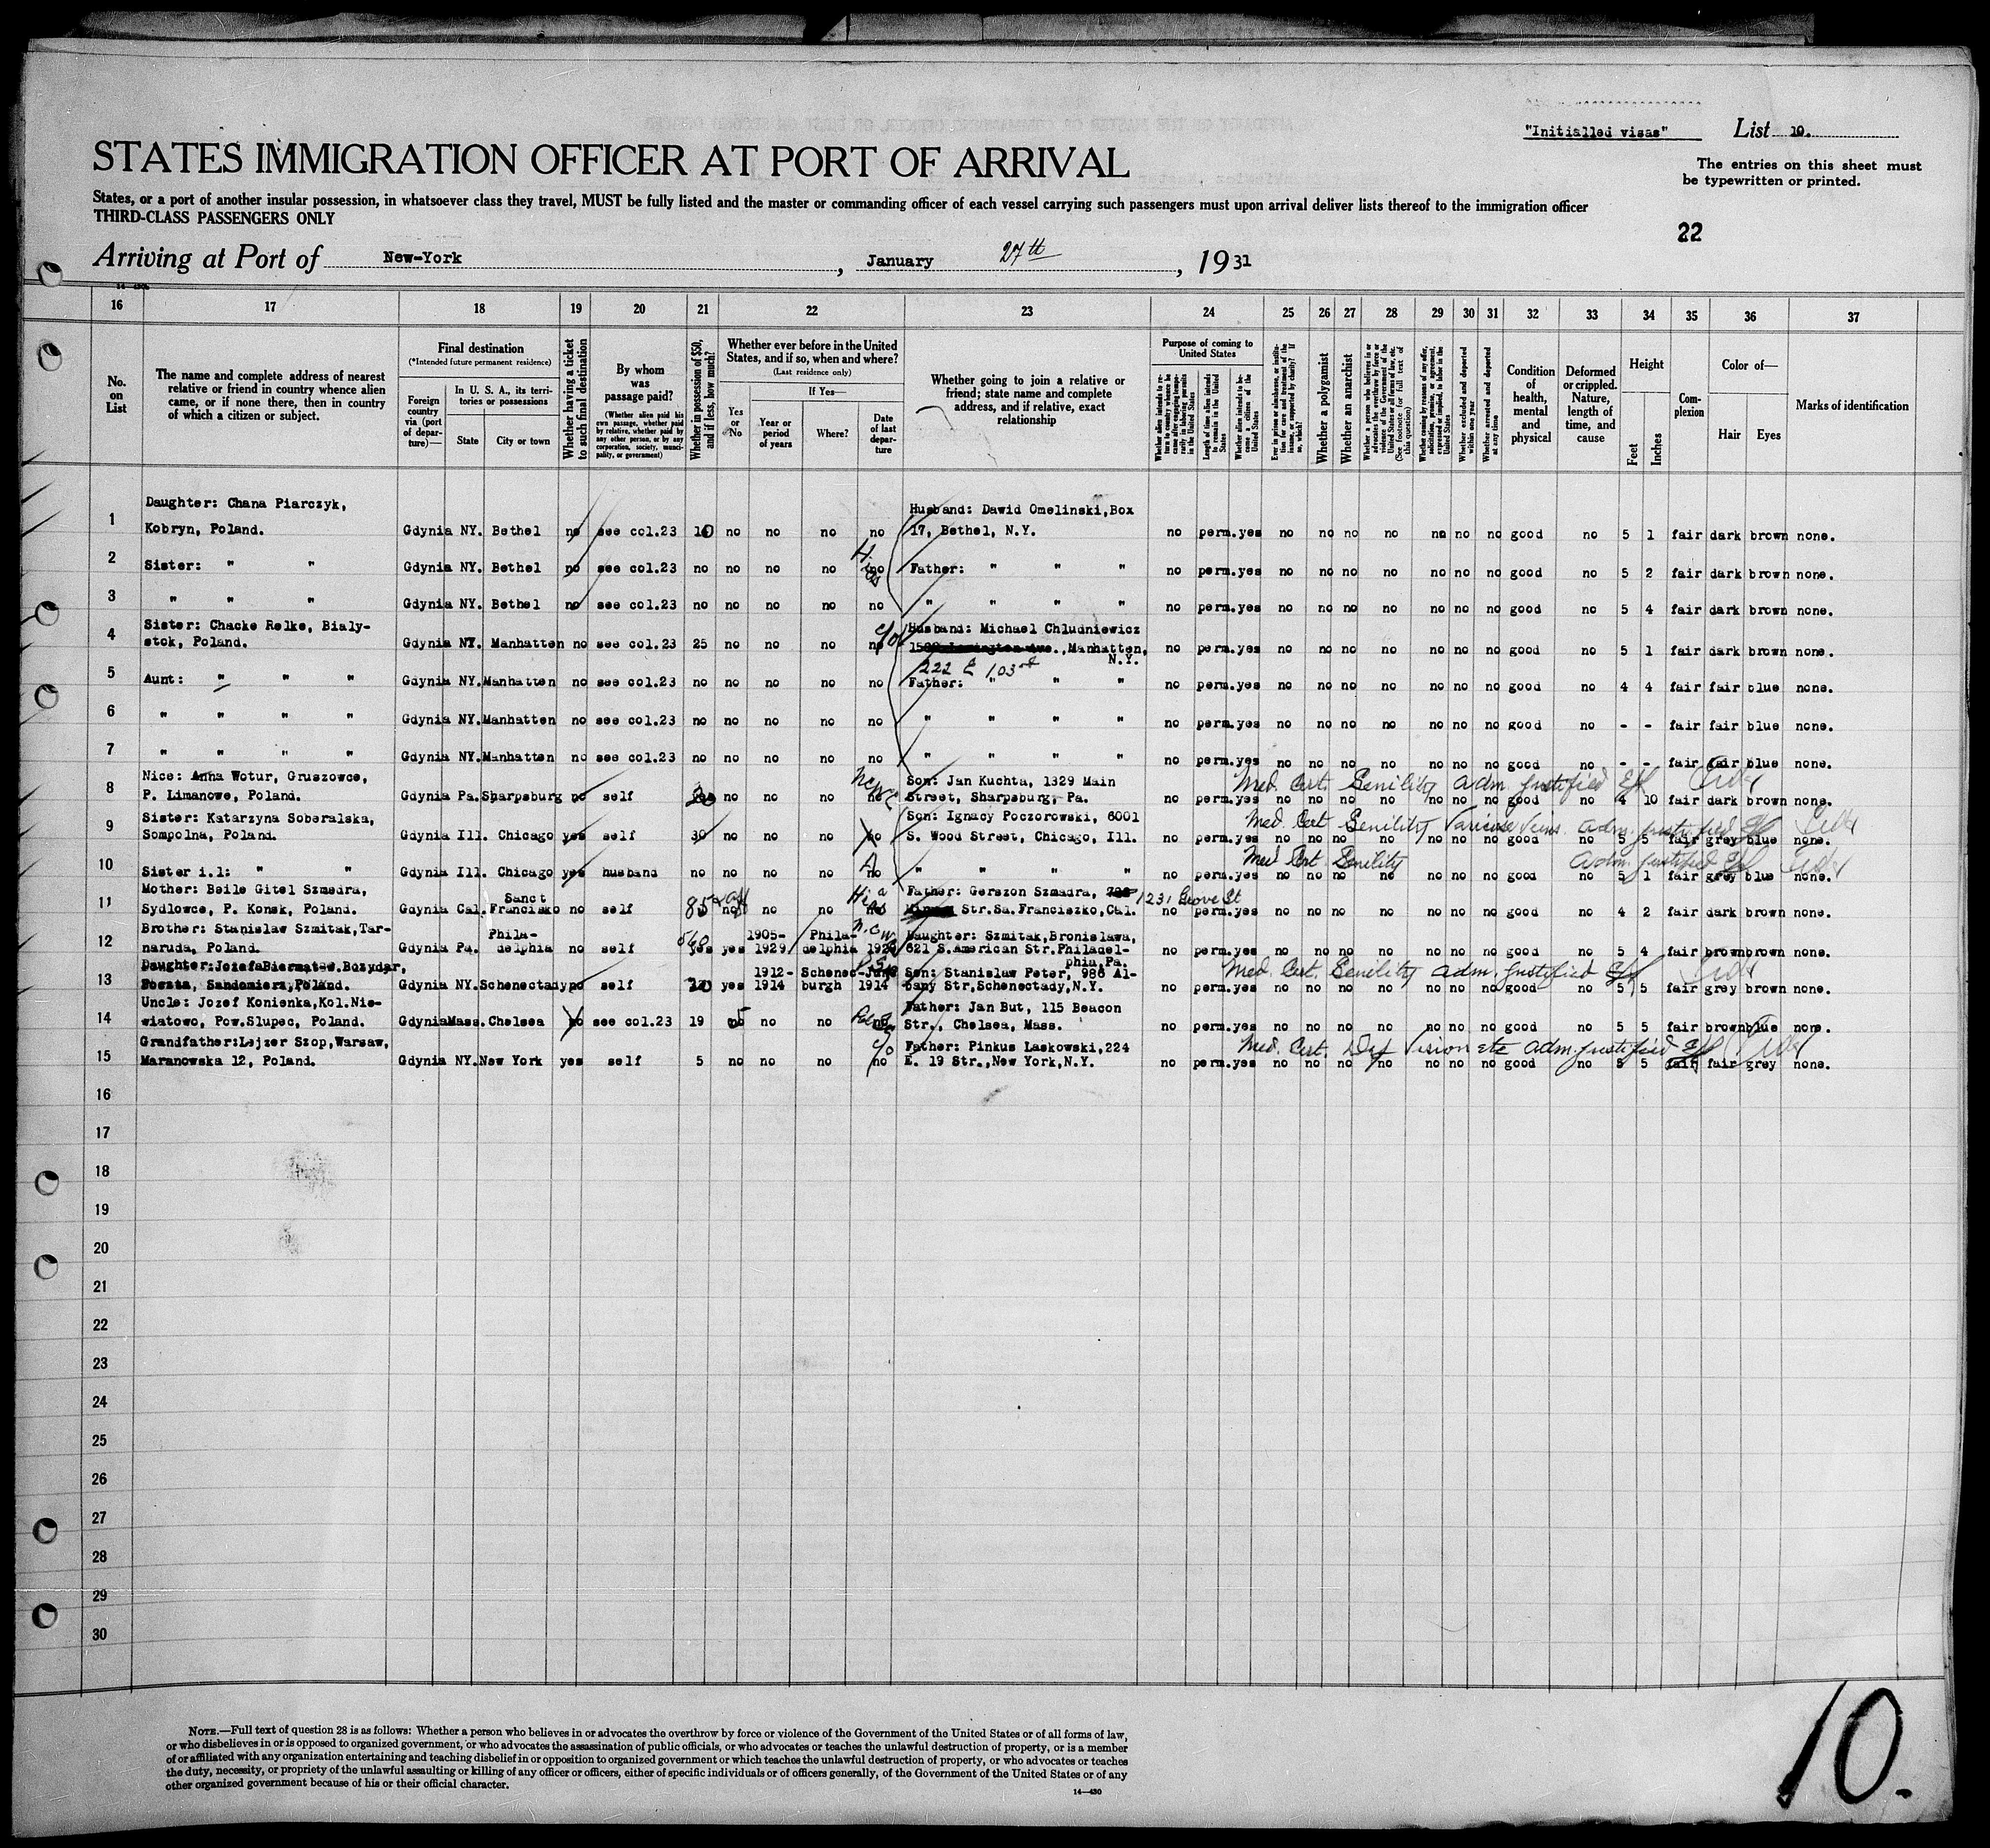 "Initialled visas" List 10.
STATES IMMIGRATION OFFICER AT PORT OF ARRIVAL
The entries on this sheet must
be typewritten or printed.
States, or a port of another insular possession, in whatsoever class they travel, MUST be fully listed and the master or commanding officer of each vessel carrying such passengers must upon arrival deliver lists thereof to the immigration officer
THIRD-CLASS PASSENGERS ONLY
22
Arriving at Port of New-York, January 27th, 1931
16 17 18 19 20 21 22 23 24 25 26 27 28 29 30 31 32 33 34 35 36 37
No. on List
The name and complete address of nearest relative or friend in country whence alien came, or if none there, then in country of which a citizen or subject.
Final destination
(*Intended future permanent residence)
Foreign country via (port of departure)—
In U. S. A., its territories or possessions
State
City or town
Whether having a ticket to such final destination
By whom was passage paid?
(Whether alien paid his own passage, whether paid by relative, whether paid by any other person, or by any corporation, society, municipality, or government)
Whether in possession of $50, and if less, how much?
Whether ever before in the United States, and if so, when and where?
(Last residence only)
Yes or No
If Yes—
Year or period of years
Where?
Date of last departure
Whether going to join a relative or friend; state name and complete address, and if relative, exact relationship
Purpose of coming to United States
Whether alien intends to return to country whence he came after engaging temporarily in laboring pursuits in the United States
Length of time alien intends to remain in the United States
Whether alien intends to become a citizen of the United States
Ever in prison or almshouse, or institution for care and treatment of the insane, or supported by charity? If so, which?
Whether a polygamist
Whether an anarchist
Whether a person who believes in or advocates the overthrow by force or violence of the Government of the United States or all forms of law, etc. (See footnote for full text of this question)
Whether coming by reasons of any offer, solicitation, promise, or agreement, expressed or implied, to labor in the United States
Whether excluded and deported within one year
Whether arrested and deported at any time
Condition of health, mental and physical
Deformed or crippled. Nature, length of time, and cause
Height
Feet
Inches
Complexion
Color of—
Hair
Eyes
Marks of identification
Daughter: Chana Piarczyk, Husband: Dawid Omelinski, Box
1 Kobryn, Poland. Gdynia NY. Bethel no see col.23 10 no no no no 17, Bethel, N.Y. no perm. yes no no no no no no no good no 5 1 fair dark brown none.
Hias
2 Sister: " " Gdynia NY. Bethel no see col.23 no no no no no Father: " " " no perm. yes no no no no no no no good no 5 2 fair dark brown none.
3 " " " Gdynia NY. Bethel no see col.23 no no no no no " " " " no perm. yes no no no no no no no good no 5 4 fair dark brown none.
Sister: Chacke Relke, Bialy- Husband: Michael Chludniewicz
4 stok, Poland. Gdynia NY. Manhatten no see col.23 25 no no no no Manhatten, N.Y. no perm. yes no no no no no no no good no 5 1 fair dark brown none.
222 E 103rd
5 Aunt: " " " Gdynia NY. Manhatten no see col.23 no no no no no Father: " " " no perm. yes no no no no no no no good no 4 4 fair fair blue none.
6 " " " " Gdynia NY. Manhatten no see col.23 no no no no no " " " " no perm. yes no no no no no no no good no - - fair fair blue none.
7 " " " " Gdynia NY. Manhatten no see col.23 no no no no no " " " " no perm. yes no no no no no no no good no - - fair fair blue none.
Nice: Anna Wotur, Gruszowce, Son: Jan Kuchta, 1329 Main Med. Cert. Senility adm. justified
8 P. Limanowe, Poland. Gdynia Pa. Sharpsburg no self no no no no Street, Sharpsburg, Pa. no perm. yes no no no no no no no good no 4 10 fair dark brown none.
Sister: Katarzyna Soberalska, Son: Ignacy Poczorowski, 6001 Med. Cert Senility Varicose Veins. adm. justified
9 Sompolna, Poland. Gdynia Ill. Chicago yes self 30 no no no no S. Wood Street, Chicago, Ill. no perm. yes no no no no no no no good no 5 5 fair grey blue none.
Med Cert Senility adm. justified
10 Sister i.l: " " Gdynia Ill. Chicago yes husband no no no no no " " " " no perm. yes no no no no no no no good no 5 1 fair grey blue none.
Mother: Beile Gitel Szmadra, Sanct Hias Father: Gerszon Szmadra, 1231 Grove St
11 Sydlowce, P. Konsk, Poland. Gdynia Cal. Francisko no self 85 no no no no Str. Sa. Franciszko, Cal. no perm. yes no no no no no no no good no 4 2 fair dark brown none.
Brother: Stanislaw Szmitak, Tar- Phila- 1905- Phila- Daughter: Szmitak, Bronislawa,
12 naruda, Poland. Gdynia Pa. delphia no self yes yes 1929 delphia 1929 621 S. American Str. Philadel- phia, Pa. no perm. yes no no no no no no no good no 5 4 fair brown brown none.
Daughter: Jozefa Biernat-w. Bozydar, 1912- Schenec- June Son: Stanislaw Peter, 986 Al- Med. Cert. Senility adm. justified
13 Poczta, Sandomierz, Poland. Gdynia NY. Schenectady no self 20 yes 1914 burgh 1914 bany Str, Schenectady, N.Y. no perm. yes no no no no no no no good no 5 5 fair grey brown none.
Uncle: Jozef Konienka, Kol. Nie- Father: Jan But, 115 Beacon
14 wiatowo, Pow. Slupec, Poland. Gdynia Mass. Chelsea no see col.23 19 no no no no Str., Chelsea, Mass. no perm. yes no no no no no no no good no 5 5 fair brown blue none.
Grandfather: Lejzer Szop, Warsaw, Father: Pinkus Laskowski, 224 Med. Cert. Def Vision etc adm. justified
15 Maranowska 12, Poland. Gdynia NY. New York yes self 5 no no no no E. 19 Str., New York, N.Y. no perm. yes no no no no no no no good no 5 5 fair fair grey none.
16
17
18
19
20
21
22
23
24
25
26
27
28
29
30
NOTE.—Full text of question 28 is as follows: Whether a person who believes in or advocates the overthrow by force or violence of the Government of the United States or of all forms of law,
or who disbelieves in or is opposed to organized government, or who advocates the assassination of public officials, or who advocates or teaches the unlawful destruction of property, or is a member
of or affiliated with any organization entertaining and teaching disbelief in or opposition to organized government or which teaches the unlawful destruction of property, or who advocates or teaches
the duty, necessity, or propriety of the unlawful assaulting or killing of any officer or officers, either of specific individuals or of officers generally, of the Government of the United States or of any
other organized government because of his or their official character.
14—430
10.